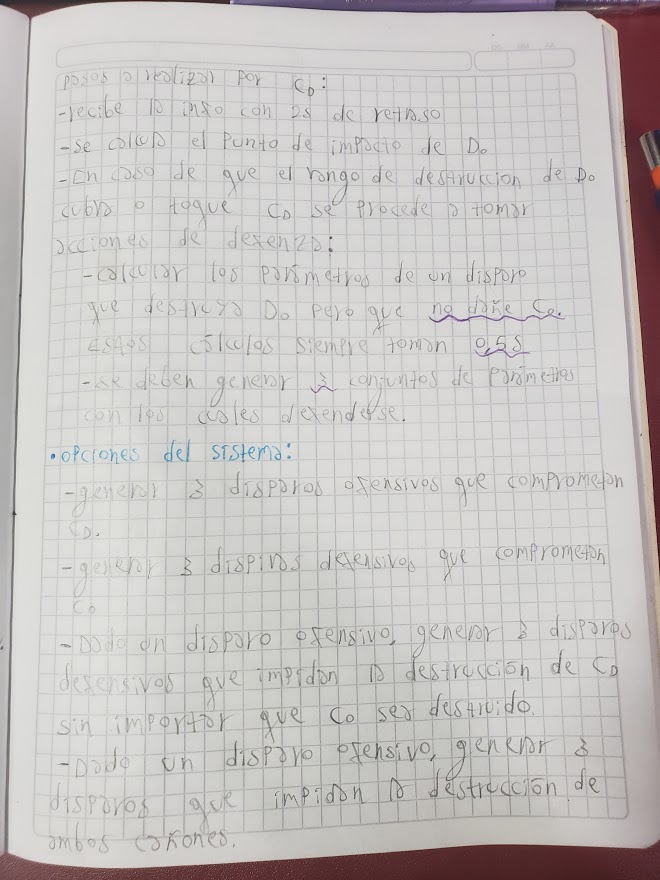 pasos a realizar por CD:
-recibe la info con 2s de retraso
-se calcula el punto de impacto de Do
-En caso de que el rango de destruccion de Do
cubra o toque CD se procede a tomar
acciones de defensa:
-calcular los parámetros de un disparo
que destruya Do pero que no dañe Co.
Estos cálculos siempre toman 0,5s
-se deben generar 3 conjuntos de parámetros
con los cuales defenderse.
•opciones del sistema:
-generar 3 disparos ofensivos que comprometan
CD.
-generar 3 disparos defensivos que comprometan
Co
-Dado un disparo ofensivo, generar 3 disparos
defensivos que impidan la destrucción de CD
sin importar que Co sea destruido.
-Dado un disparo ofensivo, generar 3
disparos que impidan la destrucción de
ambos cañones.